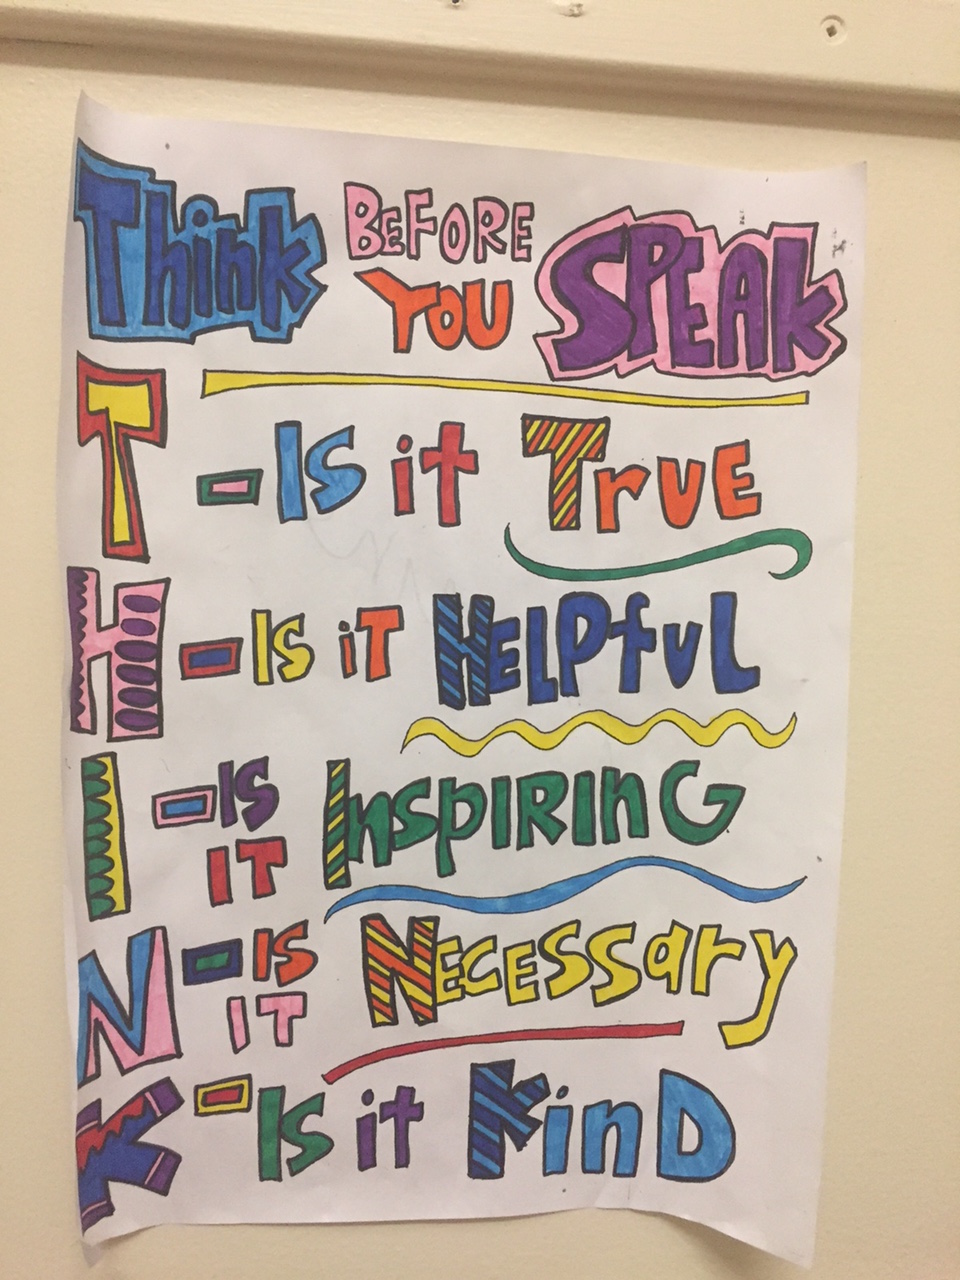 Think BEFORE YOU SPEAK
T - Is it TrUE
H - Is iT HELPfuL
I - IS IT InspIRInG
N - IS IT NECESSary
K - Is it KinD